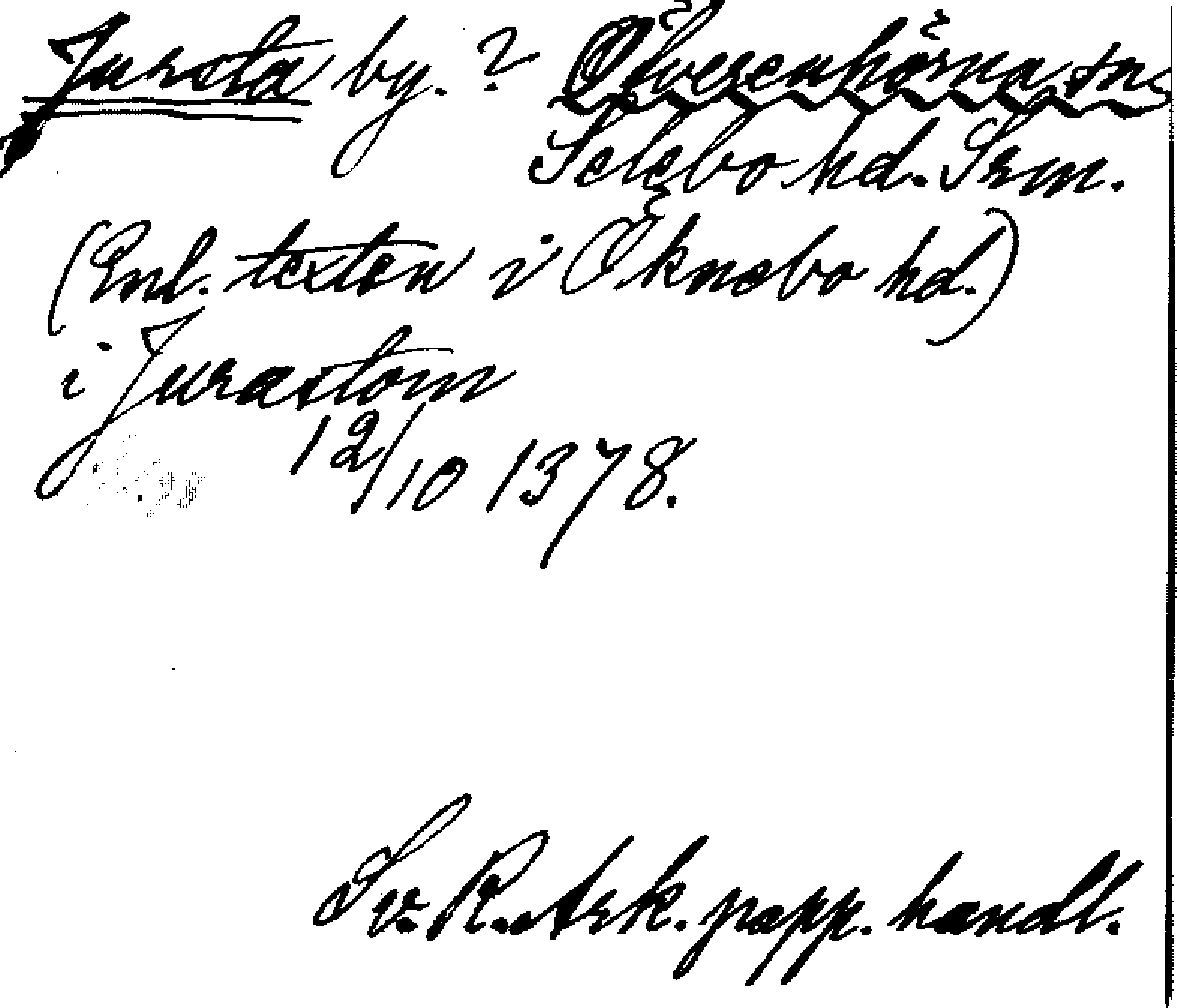 Jursta by. ? Överenhörna sn.
Selebo hd. Srm.
(Enl. texten i Öknebo hd.)
i Jurastom
12/10 1378.
Sv. R. Ark. papp. handl.